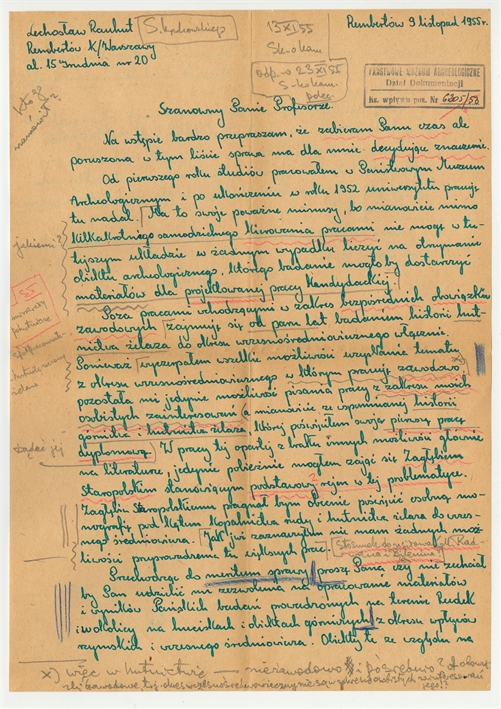 Lechosław Rauhut
Rembertów k/Warszawy
al. 15 Grudnia nr 20
Rembertów 9 listopad 1955 r.
13 XI 55
odp. w 23 XI 55
PAŃSTWOWE MUZEUM ARCHEOLOGICZNE
Dział Dokumentacji
ks. wpływu poz. Nr 6205/55
Szanowny Panie Profesorze.
Na wstępie bardzo przepraszam, że zabieram Panu czas ale
poruszona w tym liście sprawa ma dla mnie decydujące znaczenie.
Od pierwszego roku studiów pracowałem w Państwowym Muzeum
Archeologicznym i po ukończeniu w roku 1952 uniwersytetu pracuję
tu nadal. Ma to swoje poważne minusy, bo mianowicie mimo
kilkakrotnego samodzielnego kierowania pracami nie mogę w tu-
tejszym układzie w żadnym wypadku liczyć na otrzymanie
obiektu archeologicznego, którego badanie mogłoby dostarczyć
materiałów dla projektowanej pracy kandydackiej.
Poza pracami wchodzącymi w zakres bezpośrednich obowiązków
zawodowych zajmuję się od paru lat badaniem historii hut-
nictwa żelaza do okresu wczesnośredniowiecznego włącznie.
Ponieważ wyczerpałem wszelkie możliwości uzyskania tematu
z okresu wczesnośredniowiecznego w którym pracuję zawodowo x)
pozostała mi jedynie możliwość pisania pracy z zakresu moich
osobistych zainteresowań a mianowicie ze wspomnianej historii
górnictwa i hutnictwa żelaza której poświęciłem swoją pierwszą pracę
dyplomową. W pracy tej opartej z braku innych możliwości głównie
na literaturze, jedynie pobieżnie mogłem zająć się Zagłębiem
Staropolskim stanowiącym podstawowy rejon w tej problematyce.
Zagłębiu Staropolskiemu pragnął bym obecnie poświęcić osobną mo-
nografię pod kątem kopalnictwa rudy i hutnictwa żelaza do wcze-
snego średniowiecza. Jak już zaznaczyłem nie mam żadnych moż-
liwości przeprowadzenia tu większych prac.
Przechodząc do meritum sprawy proszę Pana czy nie zechciał
by Pan udzielić mi zezwolenia na opracowanie materiałów
i wyników Pańskich badań prowadzonych na terenie Rudek
i okolicy na hutniskach i obiektach górniczych z okresu wpływów
rzymskich i wczesnego średniowiecza. Obiekty te ze względu na
jakiemi?
x) więc w hutnictwie — niezawodowo i pośrednio?